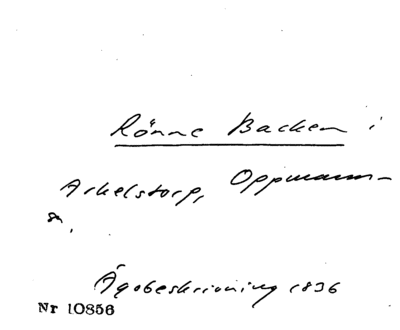 Rönne Backen i
Arkelstorp, Oppmann-
a.
Ägobeskrivning 1836
Nr 10856